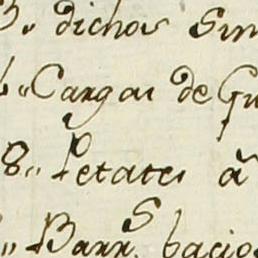 dichos Sin
Cargas de Gu
8„ Petates â
Barr.s bacio